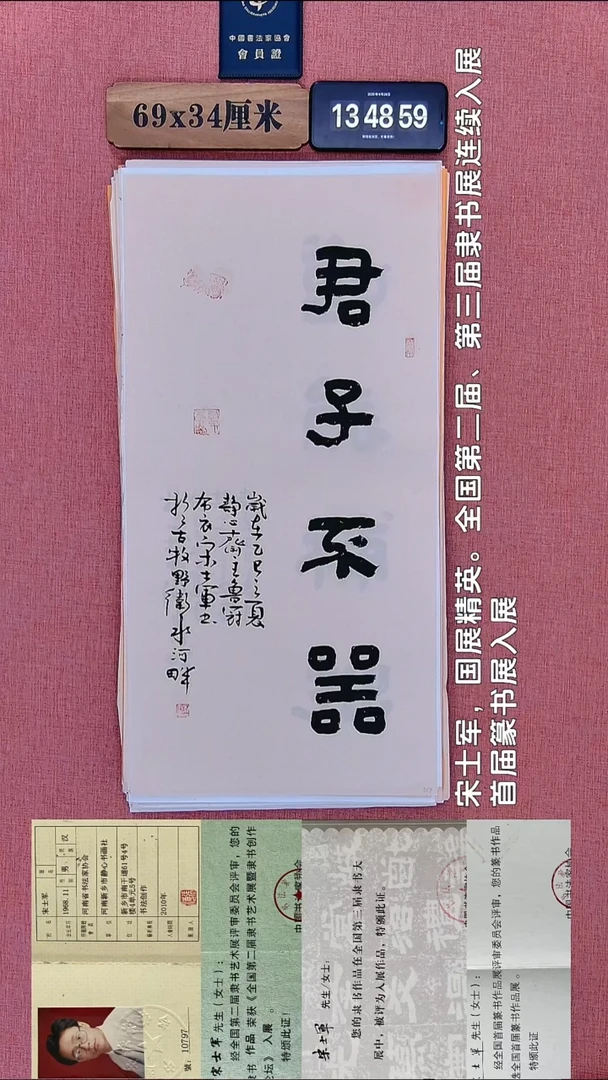 中國書法家協會
會員證
69x34厘米
13 48 59
君子不器
歲在乙巳之夏
静心齋主
布衣宋士軍書
於古牧野衛水河畔
宋士军，国展精英。全国第二届、第三届隶书展连续入展
首届篆书展入展
宋士军
1968.11 男 汉
河南省书法家协会
河南新乡市静心书画社
新乡市南干道61号4号
楼4单元5号
书法创作
2010年
號：10797
宋士军 先生（女士）：
经全国第二届隶书艺术展评审委员会评审，您的
隶书 作品 荣获《全国第二届隶书艺术展暨隶书创作
论坛》入展 。
特颁此证！
宋士军 先生/女士：
您的隶书作品在全国第三届隶书大
展中，被评为入展作品，特颁此证。
士军 先生（女士）：
经全国首届篆书作品展评审委员会评审，您的篆书作品
全国首届篆书作品展。
特颁此证